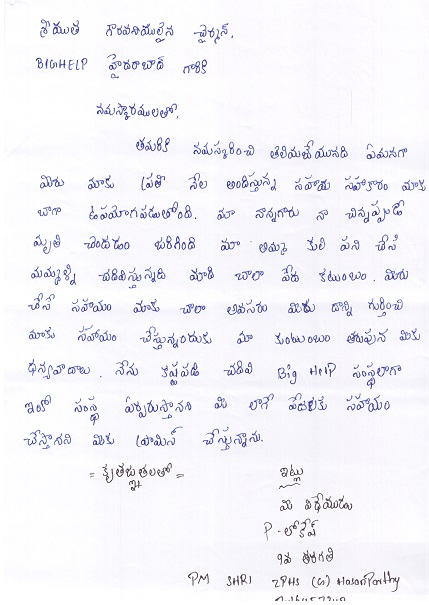 శ్రీయుత గౌరవనీయులైన చైర్మన్,
BIGHELP హైదరాబాద్ గారికి
నమస్కారములతో,
తమరికి నమస్కరించి తెలియజేయునది ఏమనగా
మీరు మాకు ప్రతి నెల అందిస్తున్న సహాయ సహకారం మాకు
బాగా ఉపయోగపడుతోంది. మా నాన్నగారు నా చిన్నప్పుడే
మృతి చెందడం జరిగింది మా అమ్మ కులి పని చేసి
మమ్మల్ని చదివిస్తున్నది మాది చాలా పేద కటుంబం. మిరు
చేసే సహాయం మాకు చాలా అవసరం మిరు దాన్ని గుర్తించి
మాకు సహాయం చేస్తున్నందుకు మా కుంటుంబం తరుపున మికు
ధన్యవాదాలు. నేను కష్టపడి చదివి Big HelP సంస్థలాగా
ఇంకో సంస్థ ఏర్పరుస్తానని మి లాగే పేదలకు సహాయం
చేస్తానని మికు ప్రామిస్ చేస్తున్నాను.
= కృతజ్ఞతలతో =
ఇట్లు
మి విధేయుడు
P - లోకేష్
9వ తరగతి
PM SHRI ZPHS (G) HasanParthy